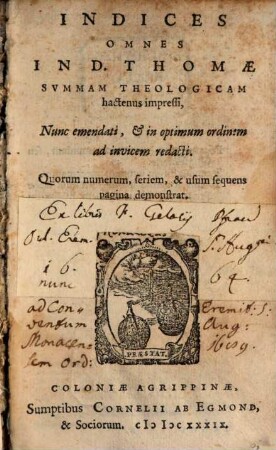 INDICES
OMNES
IN D. THOMÆ
SVMMAM THEOLOGICAM
hactenus impressi,
Nunc emendati, & in optimum ordinem
ad invicem redacti.
Quorum numerum, seriem, & usum sequens
pagina demonstrat.
Ex libris F. Gelasij
Ord. Erem. S. Augu
16. 64.
nunc
ad Con- Eremit: S:
ventum Aug:
Monacen-
sem Ord:
PRÆSTAT.
COLONIÆ AGRIPPINÆ,
Sumptibus CORNELII AB EGMOND,
& Sociorum. cIɔ Iɔc XXXIX.